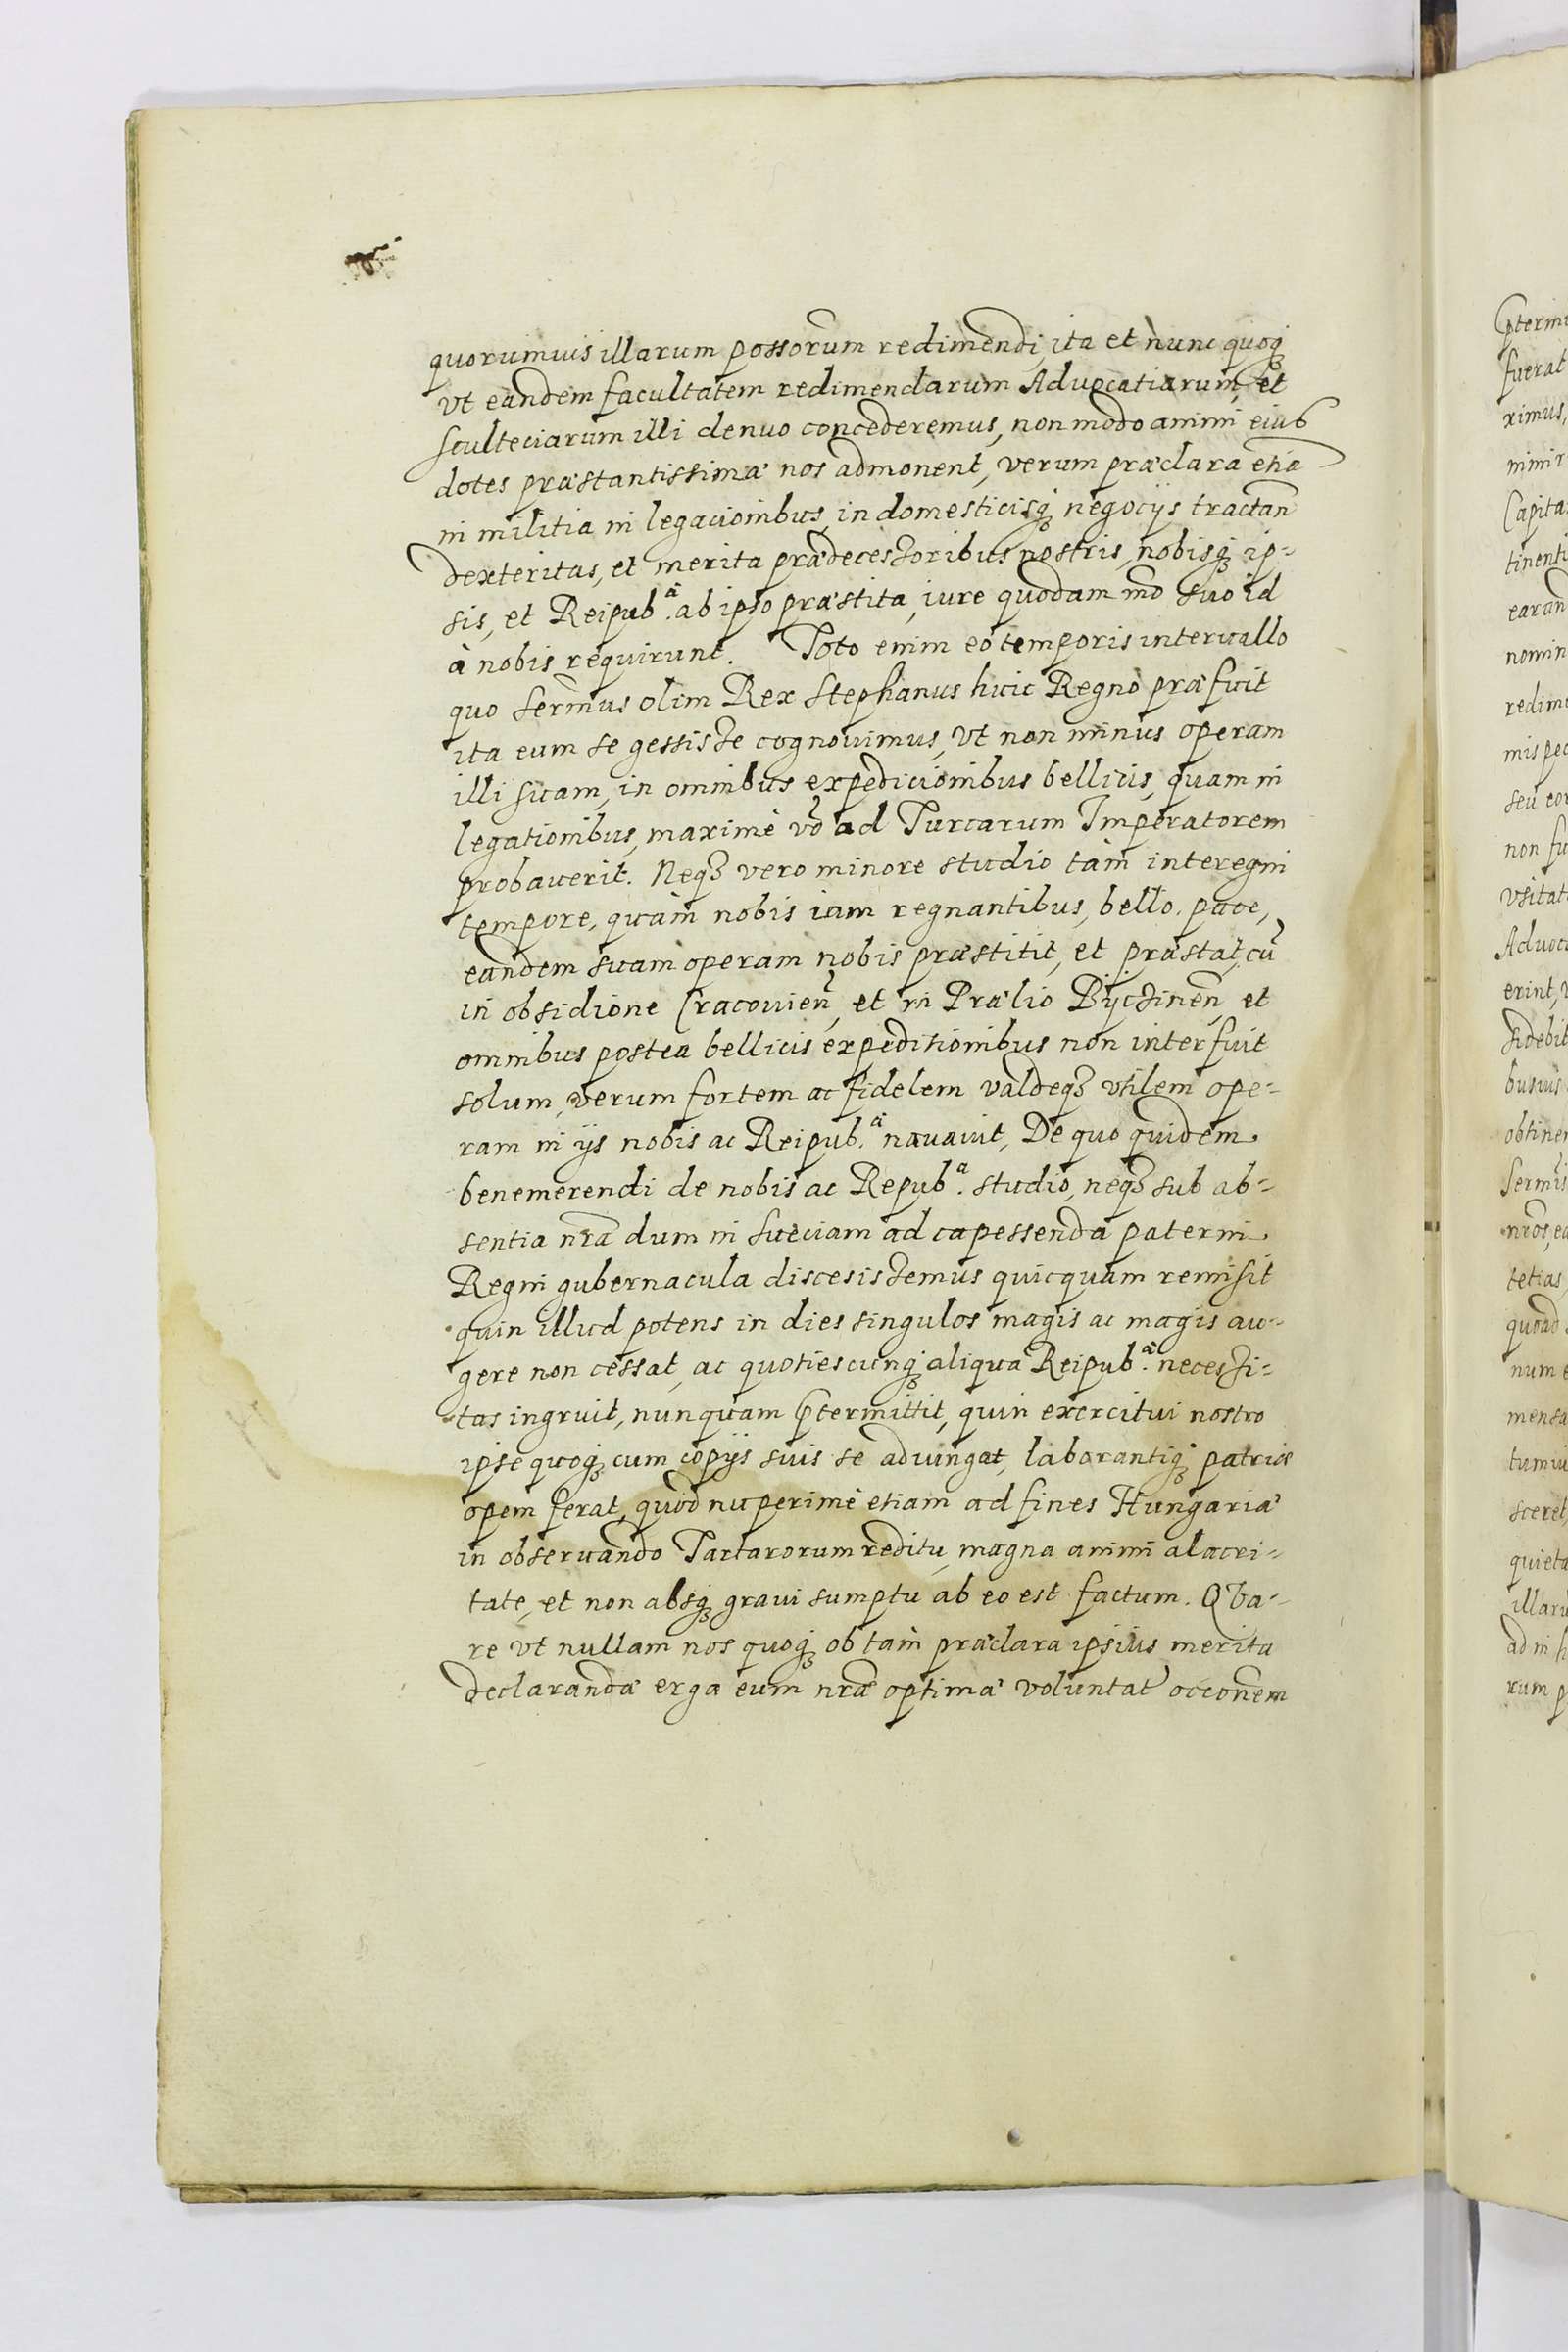 quorumuis illarum possorum redimendi, ita et nunc quoq3
vt eandem facultatem redimendarum Aduocatiarum, et
sculteciarum illi denuo concederemus, non modo animi eius
dotes præstantissimæ nos admonent, verum præclara etiã
in militia in legacionibus, in domesticisq3 negocijs tractan̄
dexteritas, et merita prædecessoribus nostris, nobisq3 ip-
sis, et Reipub.ᵃᵉ ab ipso præstita, iure quodam mō suo id
à nobis requirunt. Toto enim eo temporis interuallo
quo serm̄us olim Rex Stephanus huic Regno præfuit
ita eum se gessisse cognouimus, vt non minus operam
illi suam, in omnibus expedicionibus bellicis, quam in
legationibus, maximè vō ad Turcarum Imperatorem
probauerit. Neq3 vero minore studio tàm interegni
tempore, quàm nobis iam regnantibus, bello, pace,
eandem suam operam nobis præstitit, et præstat, cũ
in obsidione Cracouien̄, et in Prælio Byczinen̄, et
omnibus postea bellicis expeditionibus non interfuit
solum, verum fortem ac fidelem valdeq3 vtilem ope-
ram in ijs nobis ac Reipub.ᵃᵉ nauauit, De quo quidem
benemerendi de nobis ac Repub.ᵃ studio, neq3 sub ab-
sentia nr̄a dum in Sueciam ad capessenda paterni
Regni gubernacula discesissemus quicquam remisit
quin illud potens in dies singulos magis ac magis au-
gere non cessat, ac quotiescunq3 aliqua Reipub.ᵃᵉ necessi-
tas ingruit, nunquam p̄termittit, quin exercitui nostro
ipse quoq3 cum copijs suis se adiungat, laborantiq3 patriæ
opem ferat, quod nuperimè etiam ad fines Hungariæ
in obseruando Tartarorum reditu, magna animi alacri-
tate, et non absq3 graui sumptu ab eo est factum. QVa-
re vt nullam nos quoq3 ob tam præclara ipsius merita
declarandæ erga eum nr̄æ optimæ voluntat̄ occōnem